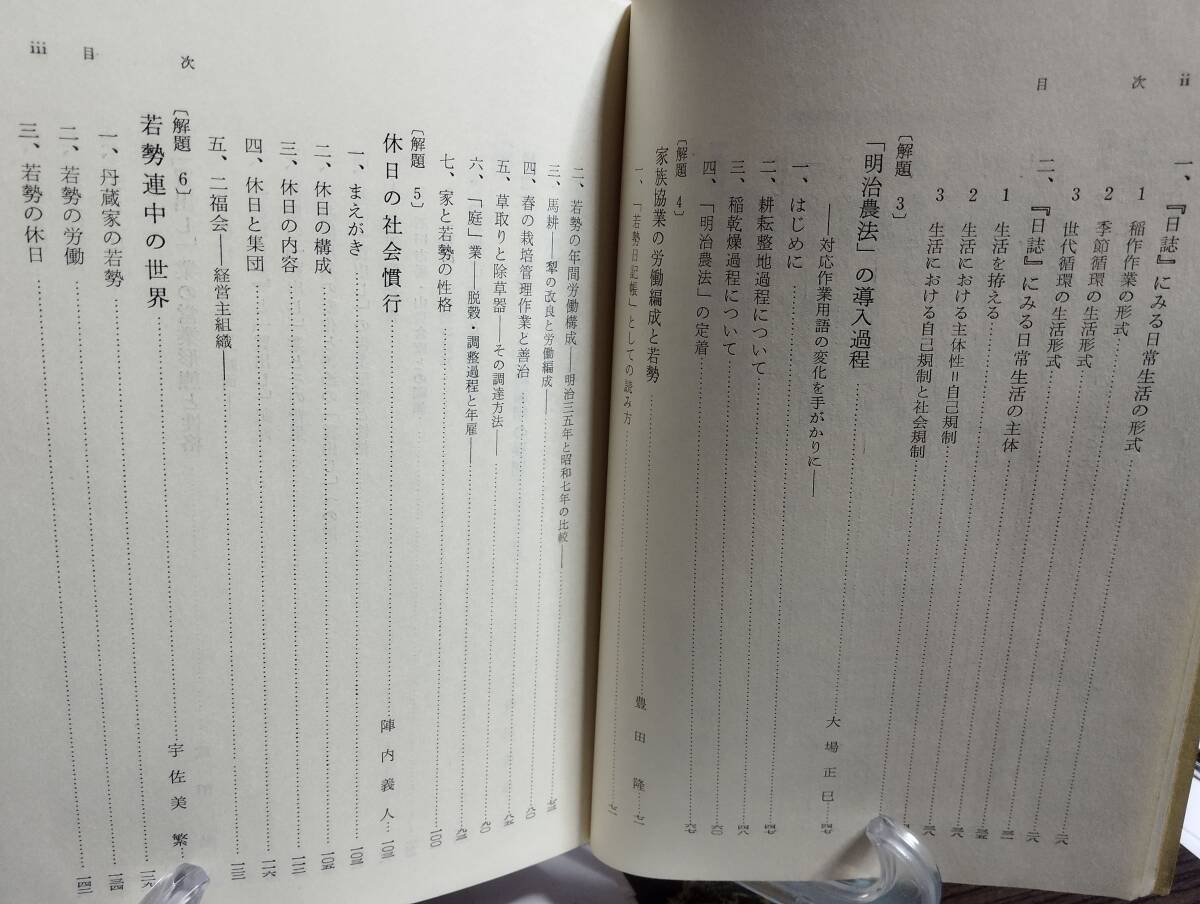 ii
目次
一、『日誌』にみる日常生活の形式
1 稲作作業の形式……二六
2 季節循環の生活形式……二六
3 世代循環の生活形式……三一
二、『日誌』にみる日常生活の主体……三五
1 生活を拵える……三五
2 生活における主体性＝自己規制……三八
3 生活における自己規制と社会規制
〔解題 3〕
「明治農法」の導入過程……大場正巳…四七
――対応作業用語の変化を手がかりに――
一、はじめに……四七
二、耕耘整地過程について……四八
三、稲乾燥過程について……六〇
四、「明治農法」の定着……六七
〔解題 4〕
家族協業の労働編成と若勢……豊田隆…七一
一、「若勢日記帳」としての読み方……七一
iii
目次
二、若勢の年間労働構成――明治三五年と昭和七年の比較――……七三
三、馬耕――犁の改良と労働編成――……七三
四、春の栽培管理作業と善治……八〇
五、草取りと除草器――その調達方法――……八五
六、「庭」業――脱穀・調整過程と年雇――……九〇
七、家と若勢の性格……一〇〇
〔解題 5〕
休日の社会慣行……陣内義人…一〇三
一、まえがき……一〇三
二、休日の構成……一〇五
三、休日の内容……一一二
四、休日と集団……一一六
五、二福会――経営主組織――
〔解題 6〕
若勢連中の世界……宇佐美繁
一、丹蔵家の若勢……一二九
二、若勢の労働……一三四
三、若勢の休日……一四二